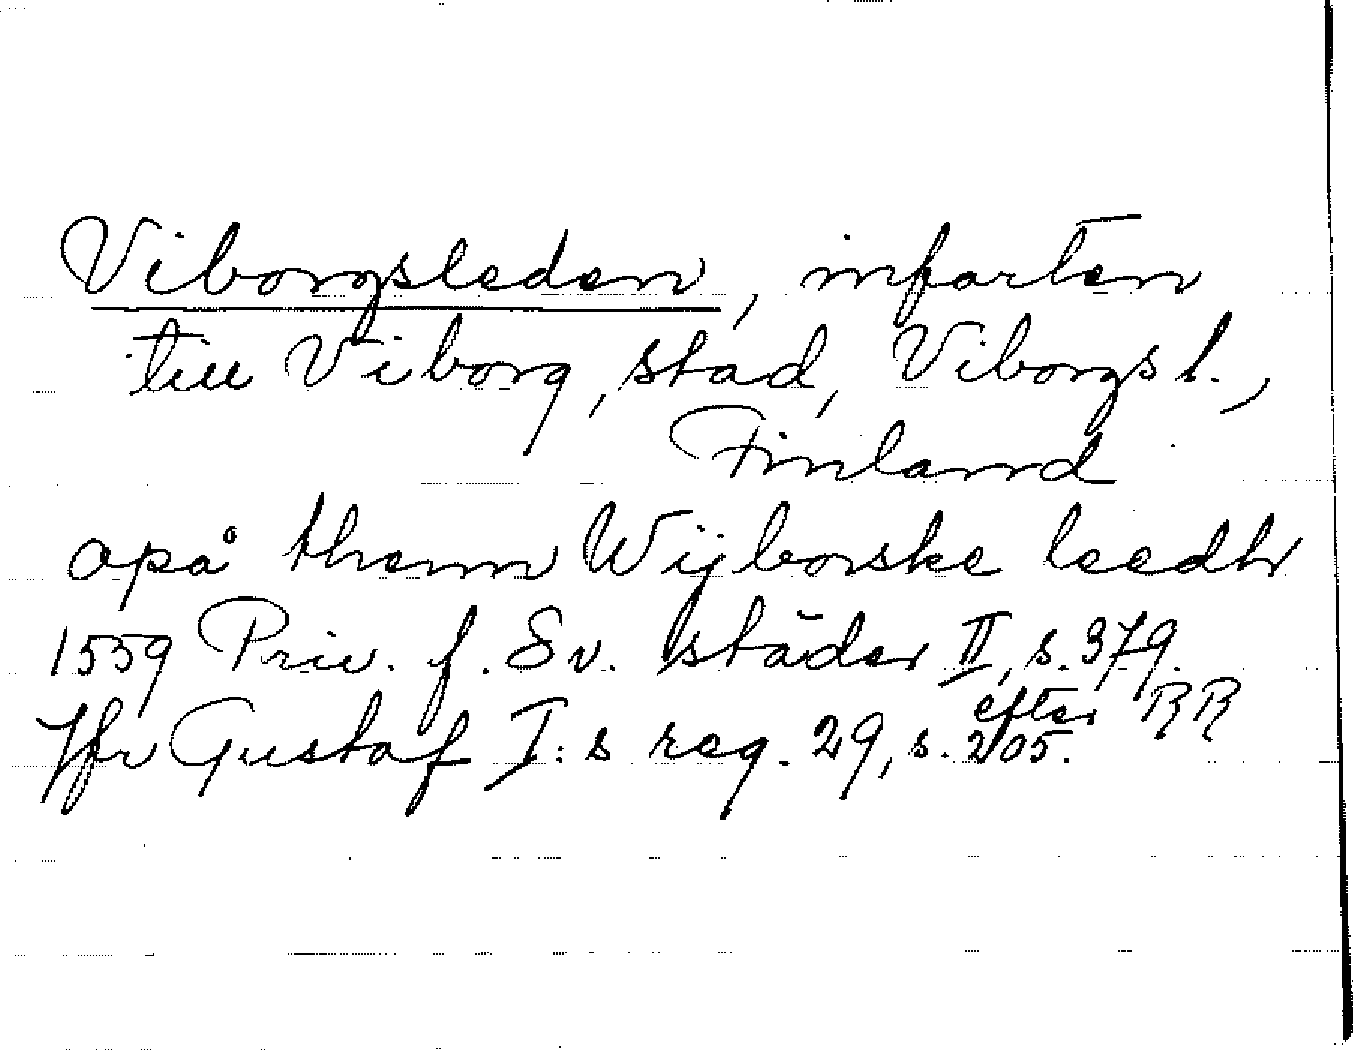 Viborgsleden, infarten
till Viborg, stad, Viborgs l.,
Finland
opå thenn Wijborske leedh
1559 Priv. f. Sv. städer II, s. 379.
efter RR
Jfr Gustaf I:s reg. 29, s. 205.